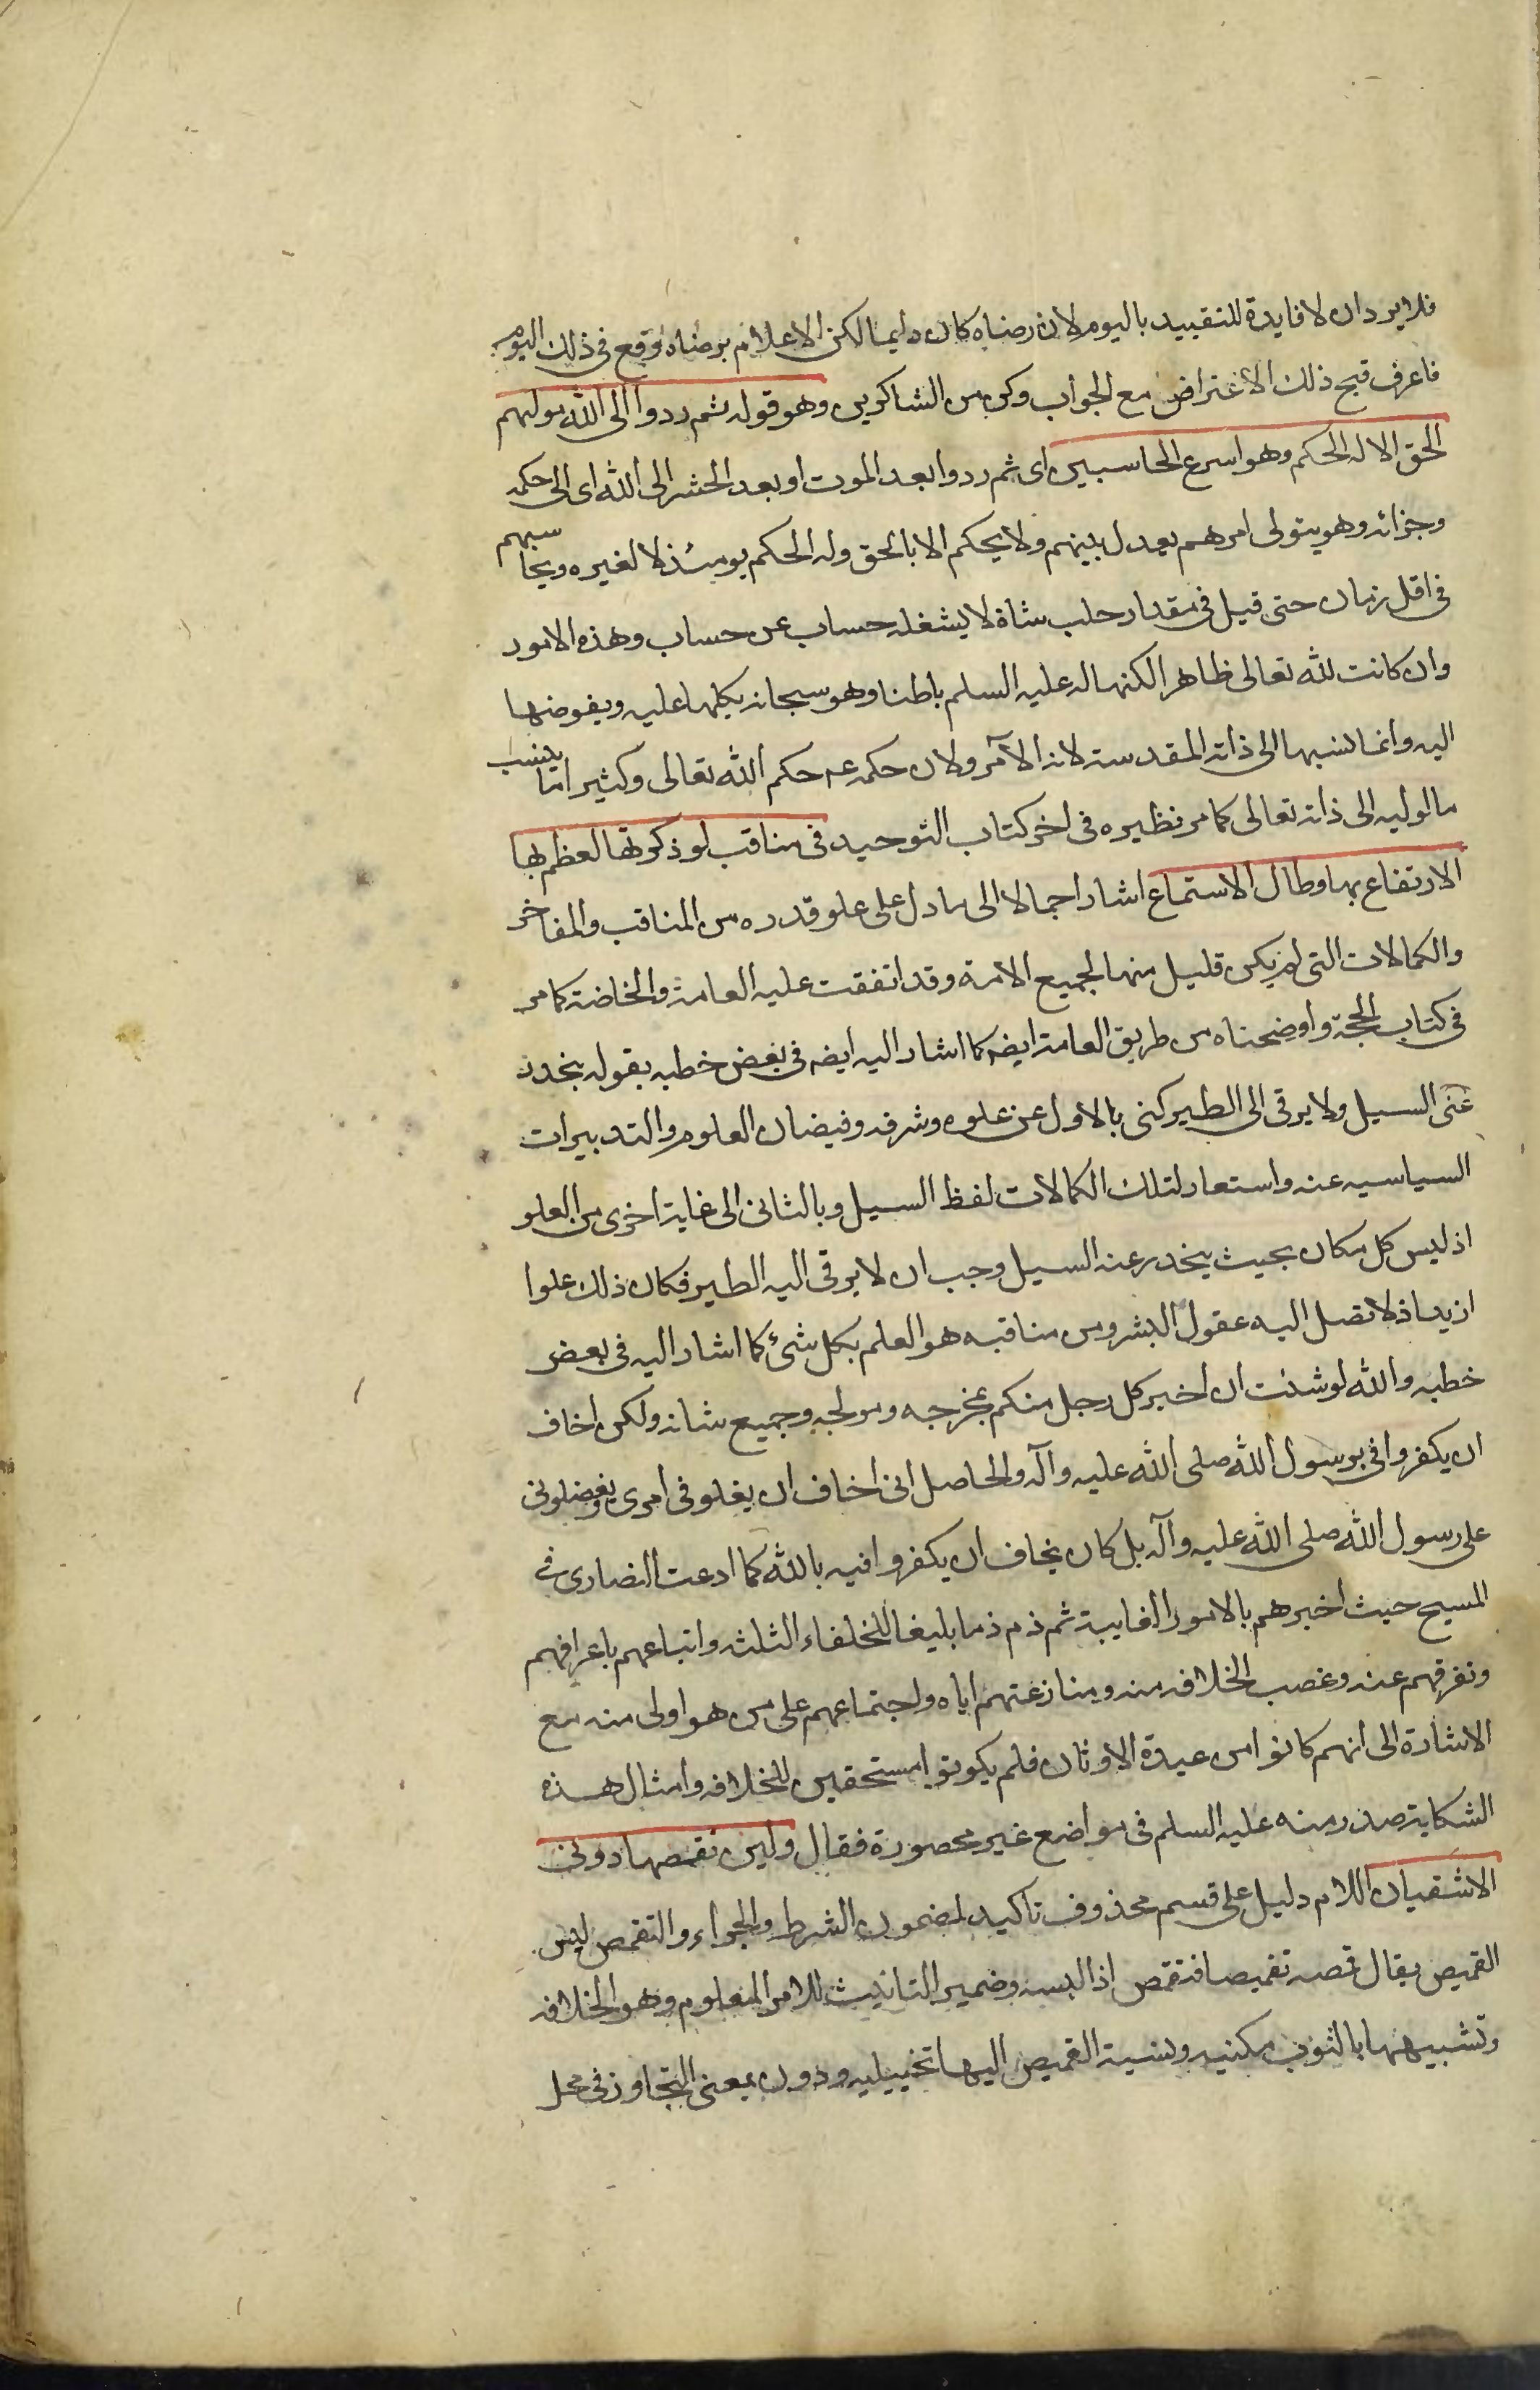 فلا يرد ان لا فايدة للتقييد باليوم لان رضاه كان دايما لكن الاعلام برضاه وقع فى ذلك اليوم
فاعرف قبح ذلك الاعتراض مع الجواب وكن من الشاكرين وهو قوله ثم ردوا الى الله موليهم
الحق الا له الحكم وهو اسرع الحاسبين اى ثم ردوا بعد الموت او بعد الحشر الى الله اى الى حكمه
وجزائه وهو يتولى امرهم بعدل بينهم ولا يحكم الا بالحق وله الحكم يومئذ لا لغيره ويحاسبهم
فى اقل زمان حتى قيل فى مقدار حلب شاة لا يشغله حساب عن حساب وهذه الامور
وان كانت لله تعالى ظاهرا لكنها له عليه السلم باطنا وهو سبحانه يكلها عليه ويفوضها
اليه وانما نسبها الى ذاته المقدسة لانه الآمر ولان حكمه عم حكم الله تعالى وكثيرا ما ينسب
ما لوليه الى ذاته تعالى كما مر نظيره فى اخر كتاب التوحيد فى مناقب لو ذكرتها لعظم بها
الارتفاع بها وطال الاستماع اشار اجمالا الى ما دل على علو قدره من المناقب والمفاخر
والكمالات التى لم يكن قليل منها لجميع الامة وقد اتفقت عليه العامة والخاصة كما مر
فى كتاب الحجة واوضحناه من طريق العامة ايضه كما اشار اليه ايضه فى بعض خطبه بقوله ينحدر
عنى السيل ولا يرقى الى الطير كنى بالاول عن علوه وشرفه وفيضان العلوم والتدبيرات
السياسيه عنه واستعار لتلك الكمالات لفظ السيل وبالثانى الى غاية اخرى من العلو
اذ ليس كل مكان بحيث ينحدر عنه السيل وجب ان لا يرقى اليه الطير فكان ذلك علوا
ازيد اذ لا تصل اليه عقول البشر ومن مناقبه هو العلم بكل شئ كما اشار اليه فى بعض
خطبه والله لو شئت ان اخبر كل رجل منكم بمخرجه ومولجه وجميع شانه ولكن اخاف
ان يكفروا فى برسول الله صلى الله عليه وآله والحاصل انى اخاف ان يغلو فى امرى ويفضلونى
على رسول الله صلى الله عليه وآله بل كان يخاف ان يكفروا فيه بالله كما ادعت النصارى فى
المسيح حيث اخبرهم بالامور الغايبة ثم ذم ذما بليغا للخلفاء الثلثه واتباعهم باعرافهم
وتفرقهم عنه وغصب الخلافه منه ومنازعتهم اياه واجتماعهم على من هو اولى منه مع
الاشارة الى انهم كانوا من عبدة الاوثان فلم يكونوا مستحقين للخلافه وامثال هذه
الشكاية صدر منه عليه السلم فى مواضع غير محصورة فقال ولين تقمصها دونى
الاشقيان اللام دليل على قسم محذوف تاكيد لمضمون الشرط والجزاء والتقمص لبس
القميص يقال قمصه تقميصا فتقمص اذا لبسه وضمير التانيث للامر المعلوم وهو الخلافه
وتشبيهها بالثوب مكنيه ونسبة القميص اليها تخييليه ودون بمعنى التجاوز فى محل